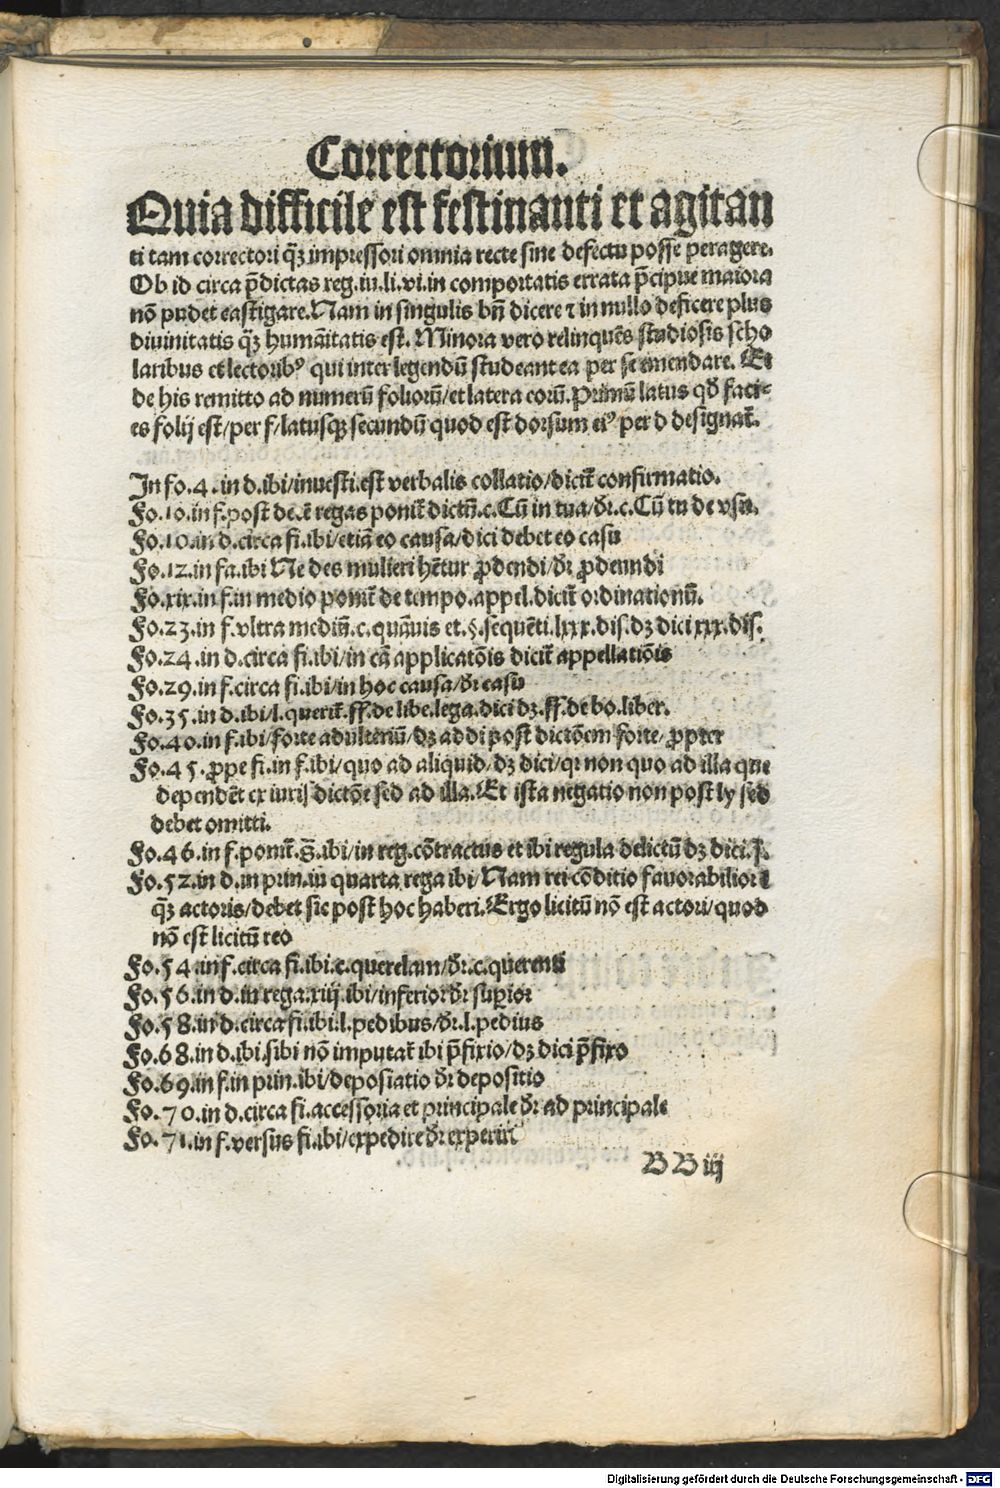 Correctorium.
Quia difficile est festinanti et agitan
ti tam correctori q̄ꝫ impressori omnia recte sine defectu posse peragere.
Ob id circa p̄dictas reg. iu. li. vi. in comportatis errata p̄cipue maiora
nō pudet castigare. Nam in singulis bn̄ dicere ⁊ in nullo deficere plus
divinitatis q̄ꝫ humāitatis est. Minora vero relinquēs studiosis scho
laribus et lectoribꝰ qui inter legendū studeant ea per se emendare. Et
de his remitto ad numerū foliorū/ et latera eorū. Primū latus qđ faci-
es folij est/ per f/ latusqꝫ secundū quod est dorsum eiꝰ per d designat̄.
In fo. 4. in d. ibi/ inuesti. est verbalis collatio/ dicit̄ confirmatio.
Fo. 10. in f. post de. ē regas ponit̄ dictū. c. Cū in tua/ đr. c. Cū tu de vsu.
Fo. 10. in d. circa fi. ibi/ etiā eo causa/ dici debet eo casu
Fo. 12. in fa. ibi Ne des mulieri hētur ꝓdendi/ đr ꝓdeundi
Fo. xix. in f. in medio ponit̄ de tempo. appel. dicit̄ ordinationū.
Fo. 23. in f. vltra mediū. c. quāuis et. §. sequēti. lxxx. dis. dꝫ dici xxx. dis.
Fo. 24. in d. circa fi. ibi/ in cā applicatōis dicit̄ appellatiōis
Fo. 29. in f. circa fi. ibi/ in hoc causa/ đr casu
Fo. 35. in d. ibi/ l. querit̄. ff. de libe. lega. dici dꝫ. ff. de bo. liber.
Fo. 40. in f. ibi/ forte adulteriū/ dꝫ addi post dictōem forte/ ꝓpter
Fo. 45. ꝓpe fi. in f. ibi/ quo ad aliquid/ dꝫ dici/ qr non quo ad illa que
dependēt ex iurisdictōe sed ad illa. Et ista negatio non post ly sed
debet omitti.
Fo. 46. in f. ponit̄. S. ibi/ in reg. cōtractus et ibi regula delictū dꝫ dici. J.
Fo. 52. in d. in prin. in quarta rega ibi/ Nam rei cōditio fauorabilior ē
q̄ꝫ actoris/ debet sic post hoc haberi. Ergo licitū nō est actori/ quod
nō est licitū reo
Fo. 54. in f. circa fi. ibi. c. querelam/ đr. c. querenti
Fo. 56. in d. in rega. xiij. ibi/ inferior đr suꝑior
Fo. 58. in d. circa fi. ibi. l. pedibus/ đr. l. pedius
Fo. 68. in d. ibi. sibi nō imputat̄ ibi p̄fixio/ dꝫ dici p̄fixo
Fo. 69. in f. in prin. ibi/ deposiatio đr depositio
Fo. 70. in d. circa fi. accessoria et principale đr ad principale
Fo. 71. in f. versus fi. ibi/ expedire đr experiri
BB iij
Digitalisierung gefördert durch die Deutsche Forschungsgemeinschaft - DFG